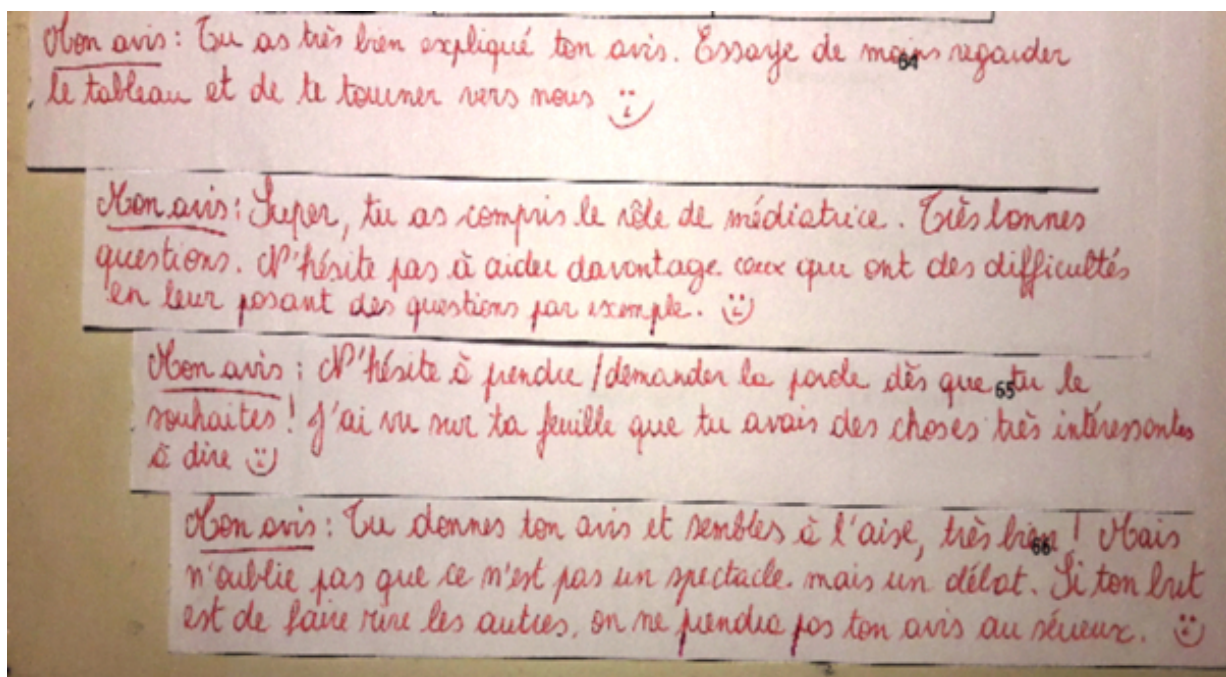 Mon avis : Tu as très bien expliqué ton avis. Essaye de moins regarder
le tableau et de te tourner vers nous
Mon avis : Super, tu as compris le rôle de médiatrice. Très bonnes
questions. N'hésite pas à aider davantage ceux qui ont des difficultés
en leur posant des questions par exemple.
Mon avis : N'hésite à prendre / demander la parole dès que tu le
souhaites ! J'ai vu sur ta feuille que tu avais des choses très intéressantes
à dire
Mon avis : Tu donnes ton avis et sembles à l'aise, très bien ! Mais
n'oublie pas que ce n'est pas un spectacle. mais un débat. Si ton but
est de faire rire les autres, on ne prendra pas ton avis au sérieux.
64
65
66